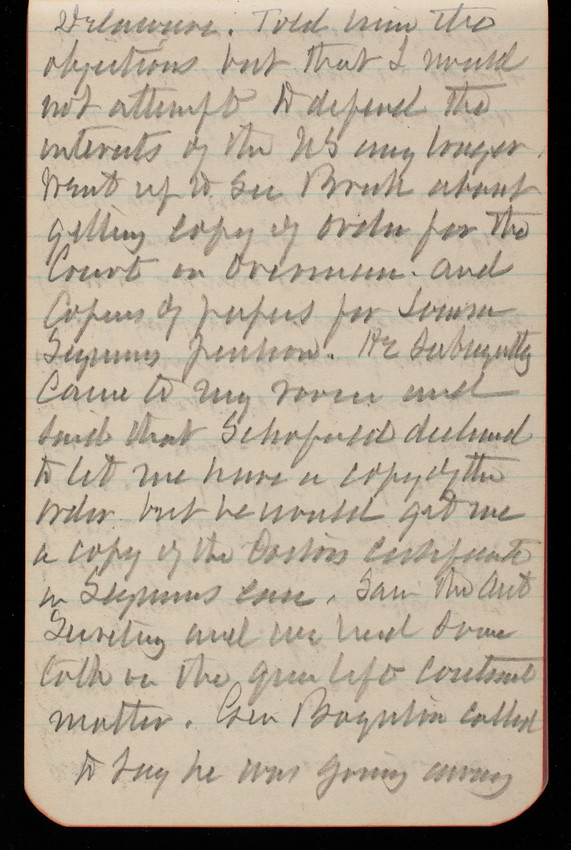 Delaware. Told him the
objections but that I would
not attempt to defend the
interests of the US any longer.
Went up to see Breck about
getting copy of order for the
Court on Overman. and
Copies of papers for Louisa
Seymour pension. He subsequently
Came to my room and
said that Schofield declined
to let me have a copy of the
order. but he would get me
a copy of the Doctors certificate
in Seymours case. Saw the Asst
Secretary and we had some
talk on the gun lift contract
matter. Gen Boynton called
to say he was going away